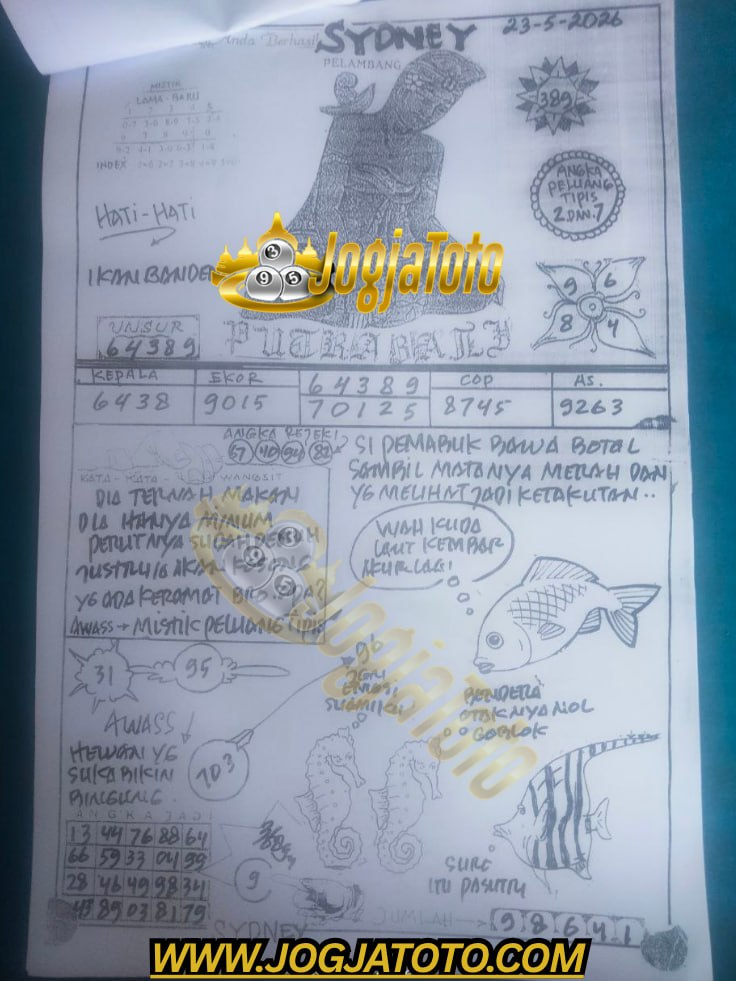 Anda Berhasil SYDNEY 23-5-2026
PELAMBANG
MISTIK
LAMA - BARU
INDEX
389
ANGKA
PELUANG
TIPIS
2 DAN 7
HATI-HATI
IKAN BANDE
3
9 5
JogjaToto
9 6
8 4
UNSUR
64389
PUTRA BALI
KEPALA EKOR 64389 COP AS.
6438 9015 70125 8745 9263
ANGKA REJEKI
67 40 94 82
SI PEMABUK BAWA BOTOL
SAMBIL MATANYA MERAH DAN
YG MELIHAT JADI KETAKUTAN..
KATA - KATA WANGSIT
DIA TERNAH MAKAN
DIA HANYA MINUM
PERUTNYA SUDAH
JUSTRU IA IKAN
YG ADA KERAMAT
AWASS → MISTIK PELUANG TIPIS
WAH KUDA
LAUT KEMBAR
AKUR LAGI
31 95
SUAMIKU
BENDERA
OTAKNYA NOL
GOBLOK
AWASS
HEWAN YG
SUKA BIKIN
BINGUNG
703
ANGKA JADI
13 44 76 88 64
66 59 33 04 99
28 46 49 98 34
43 89 03 81 79
9
SURE
ITU PASUTRI
SYDNEY
98641
JogjaToto
WWW.JOGJATOTO.COM